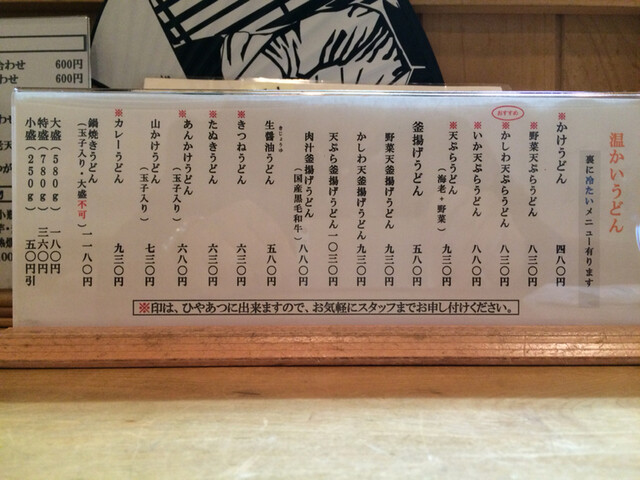 温かいうどん
裏に冷たいメニュー有ります
※かけうどん 四八〇円
※野菜天ぷらうどん 八三〇円
おすすめ
※かしわ天ぷらうどん 八三〇円
※いか天ぷらうどん 八八〇円
※天ぷらうどん(海老+野菜) 九三〇円
釜揚げうどん 五八〇円
野菜天釜揚げうどん 九三〇円
かしわ天釜揚げうどん 九三〇円
天ぷら釜揚げうどん 一〇三〇円
肉汁釜揚げうどん(国産黒毛和牛) 八八〇円
生醤油うどん 五八〇円
※きつねうどん 六三〇円
※たぬきうどん 六三〇円
※あんかけうどん(玉子入り) 六八〇円
山かけうどん(玉子入り) 七三〇円
※カレーうどん 九三〇円
鍋焼きうどん(玉子入り・大盛不可) 一一八〇円
大盛(580g) 一八〇円
特盛(780g) 三六〇円
小盛(250g) 五〇円引
※印は、ひやあつに出来ますので、お気軽にスタッフまでお申し付けください。
合わせ 600円
わせ 600円